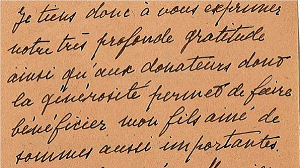 Je tiens donc à vous exprimer
notre très profonde gratitude
ainsi qu'aux donateurs dont
la générosité permet de faire
bénéficier mon fils aîné de
sommes aussi importantes.